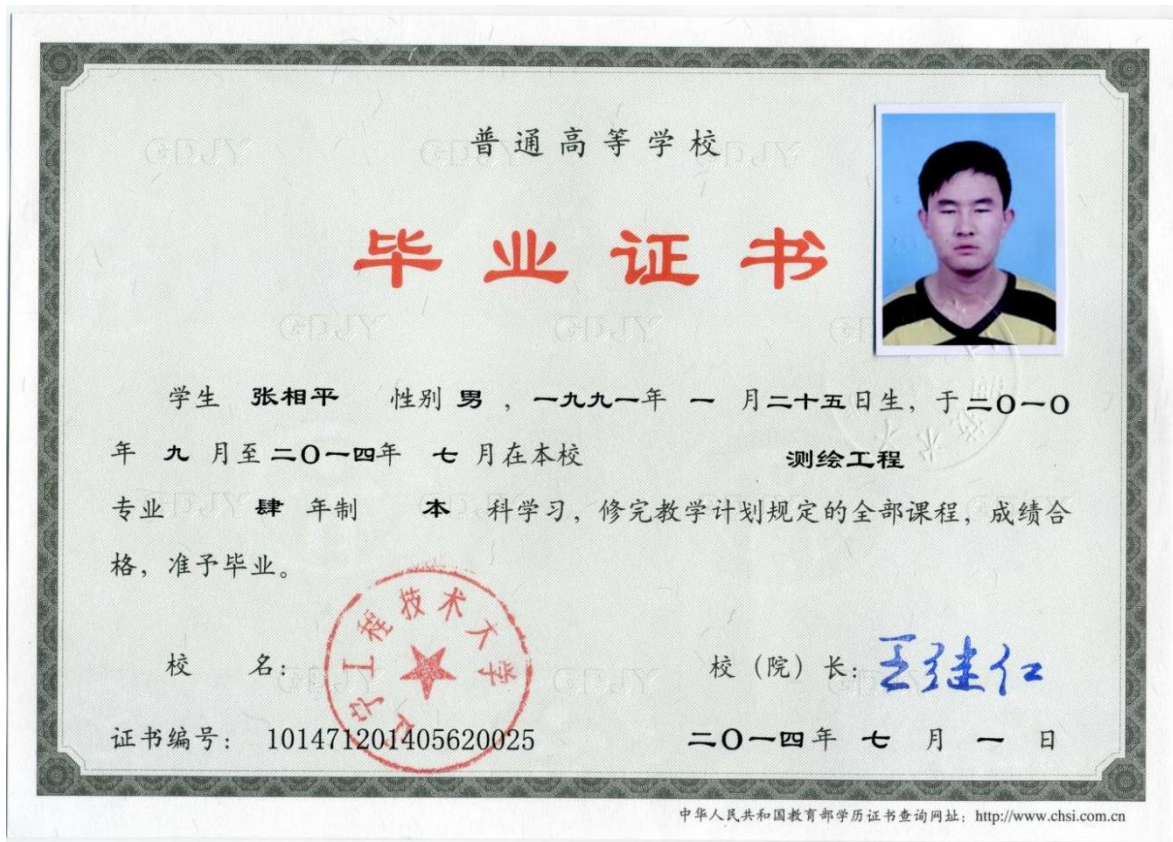 普通高等学校
毕业证书
学生 张相平 性别 男 ，一九九一年 一 月二十五日生，于二〇一〇
年 九 月至二〇一四年 七 月在本校 测绘工程
专业 肆 年制 本 科学习，修完教学计划规定的全部课程，成绩合
格，准予毕业。
辽宁工程技术大学
校 名：
校（院）长：王继仁
证书编号： 101471201405620025
二〇一四年 七 月 一 日
中华人民共和国教育部学历证书查询网址：http://www.chsi.com.cn
GDJY
GDJY
GDJY
GDJY
GDJY